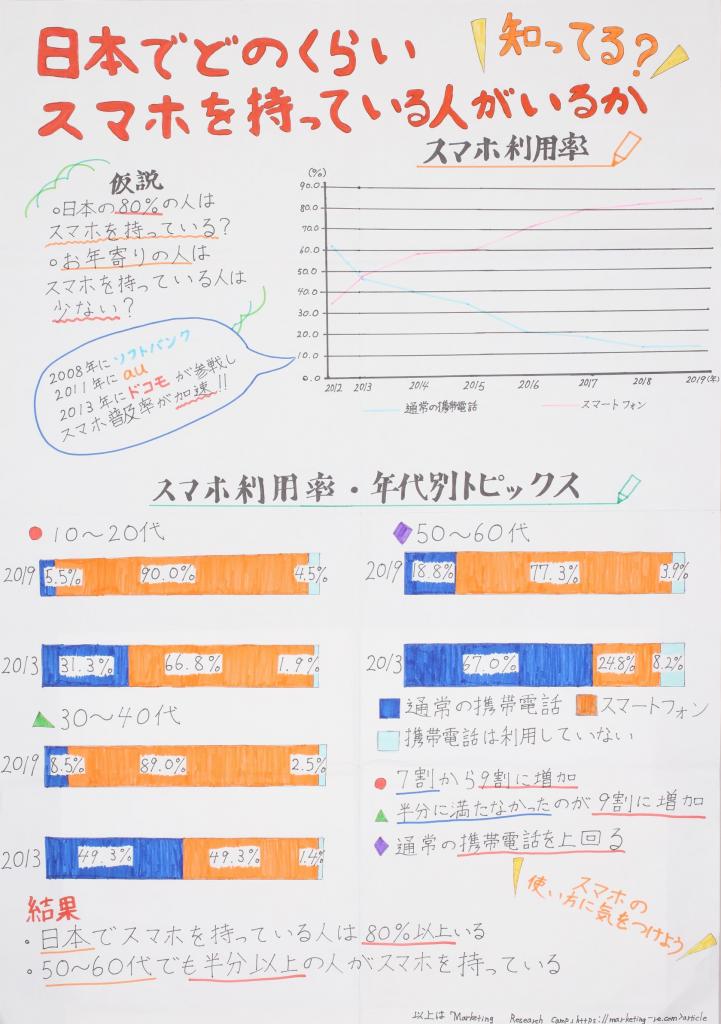 日本でどのくらい
知ってる?
スマホを持っている人がいるか
スマホ利用率
仮説
○日本の80%の人は
スマホを持っている?
○お年寄りの人は
スマホを持っている人は
少ない?
2008年にソフトバンク
2011年にau
2013年にドコモが参戦し
スマホ普及率が加速!!
(%)
90.0
80.0
70.0
60.0
50.0
40.0
30.0
20.0
10.0
0.0
2012 2013 2014 2015 2016 2017 2018 2019(年)
通常の携帯電話 スマートフォン
スマホ利用率・年代別トピックス
10〜20代
2019 5.5% 90.0% 4.5%
2013 31.3% 66.8% 1.9%
30〜40代
2019 8.5% 89.0% 2.5%
2013 49.3% 49.3% 1.4%
50〜60代
2019 18.8% 77.3% 3.9%
2013 67.0% 24.8% 8.2%
通常の携帯電話 スマートフォン
携帯電話は利用していない
7割から9割に増加
半分に満たなかったのが9割に増加
通常の携帯電話を上回る
スマホの
使い方に気をつけよう
結果
・日本でスマホを持っている人は80%以上いる
・50〜60代でも半分以上の人がスマホを持っている
以上は"Marketing Research Camp https://marketing-rc.com/article